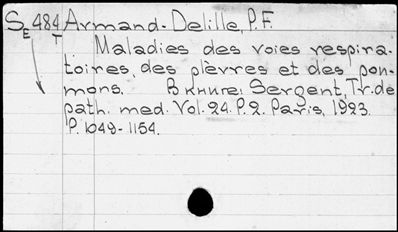 SE 484 T Armand-Delille, P. F.
Maladies des voies respira-
toires, des plèvres et des pou-
mons. В книге: Sergent, Tr. de
path. med. Vol. 24. P. 2. Paris, 1923.
P. 1049-1154.